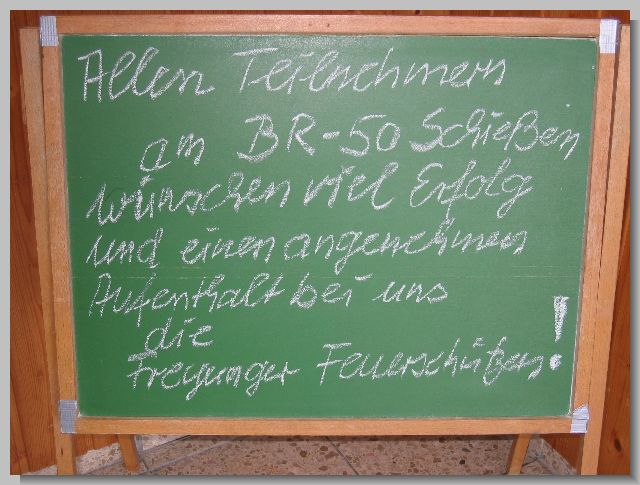 Allen Teilnehmern
am BR-50 Schießen
wünschen viel Erfolg
und einen angenehmen
Aufenthalt bei uns
die
Freyunger Feuerschützen!